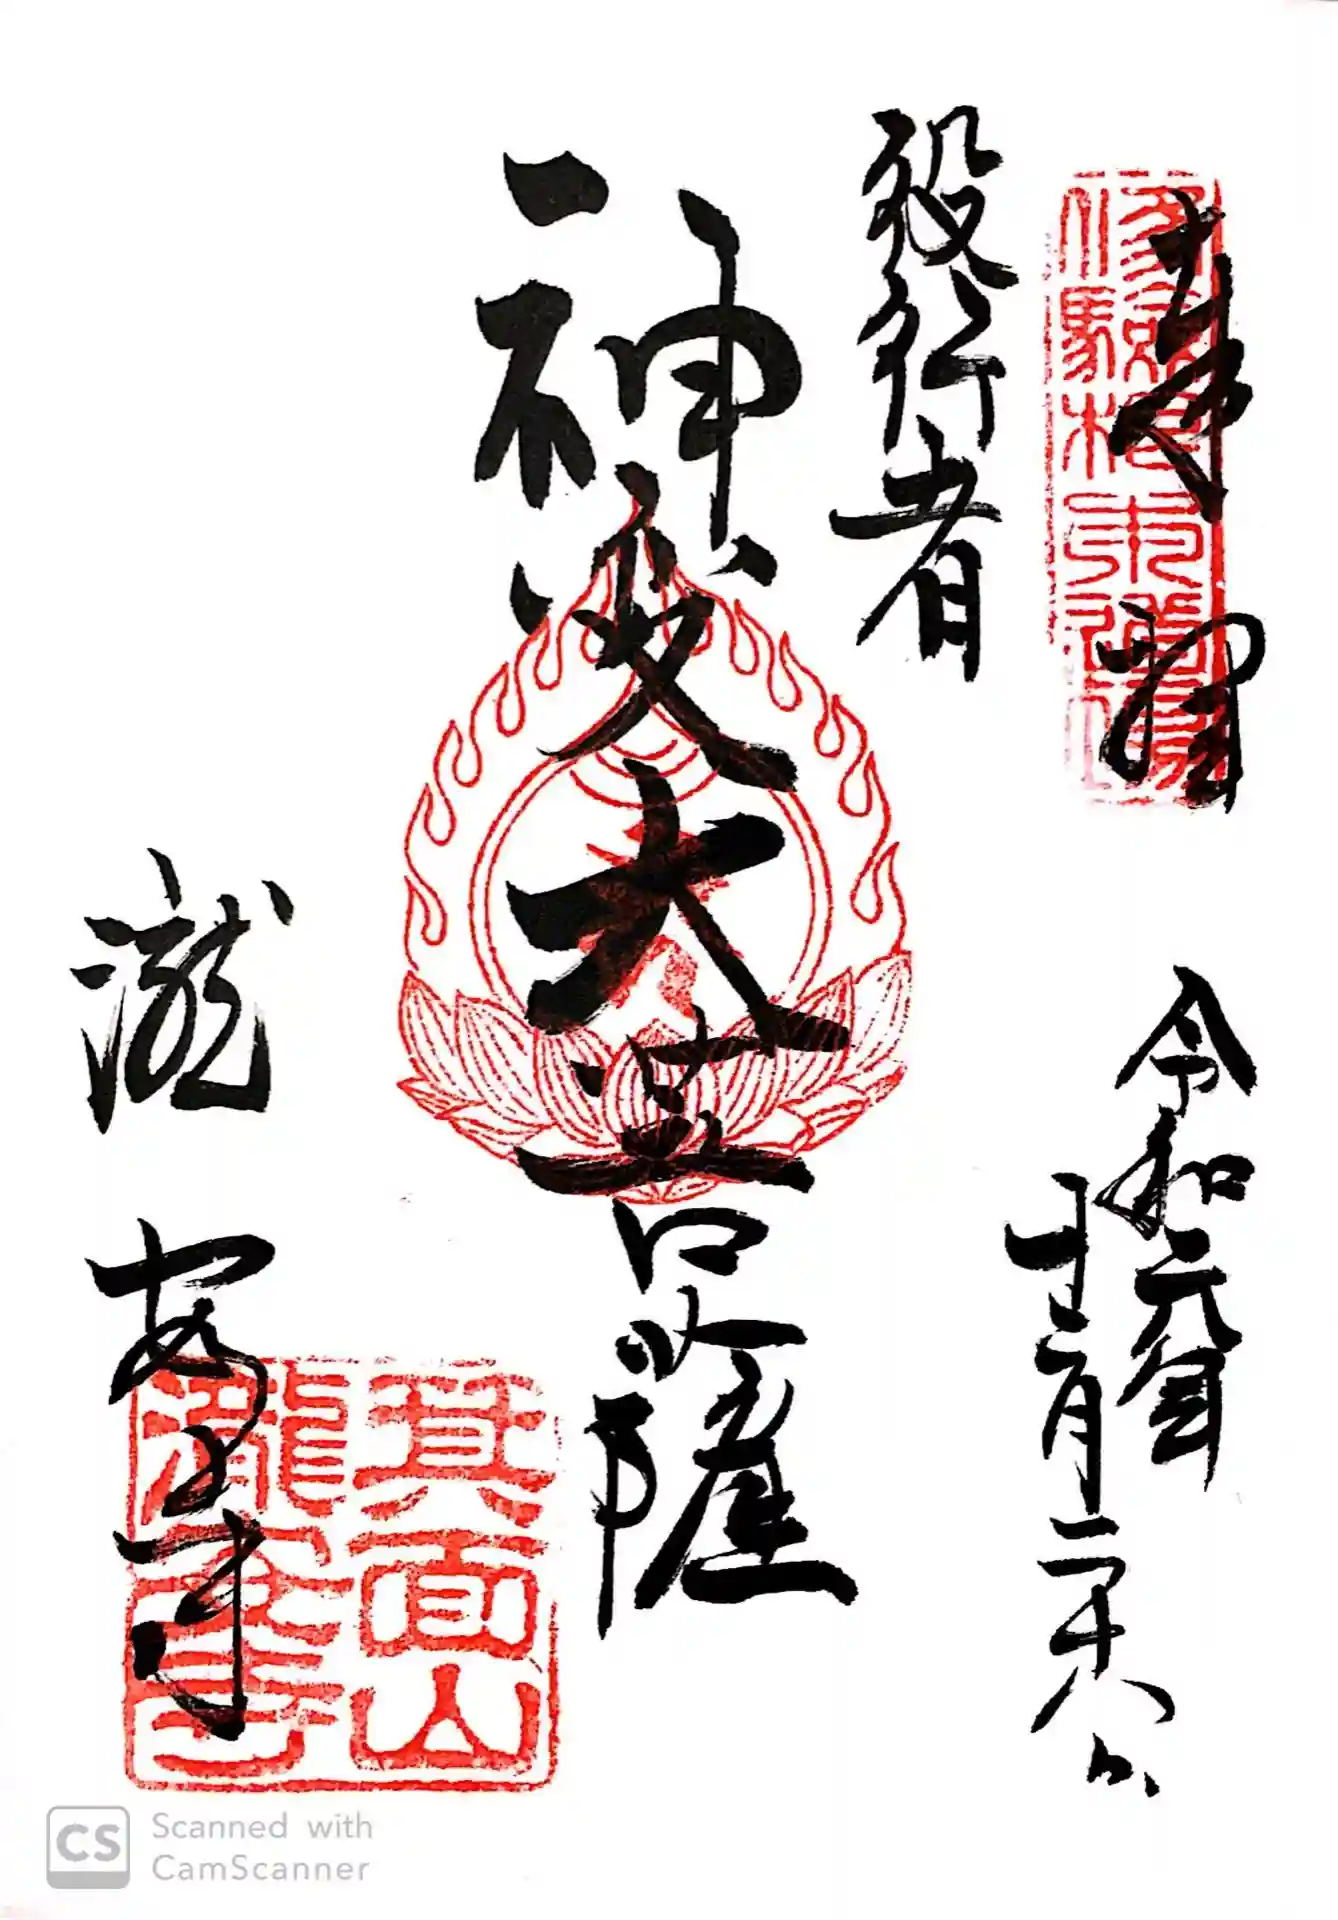 奉拝
役行者
神変大菩薩
令和元年
十二月二十八日
瀧安寺
箕面山
瀧安寺
CS Scanned with
CamScanner